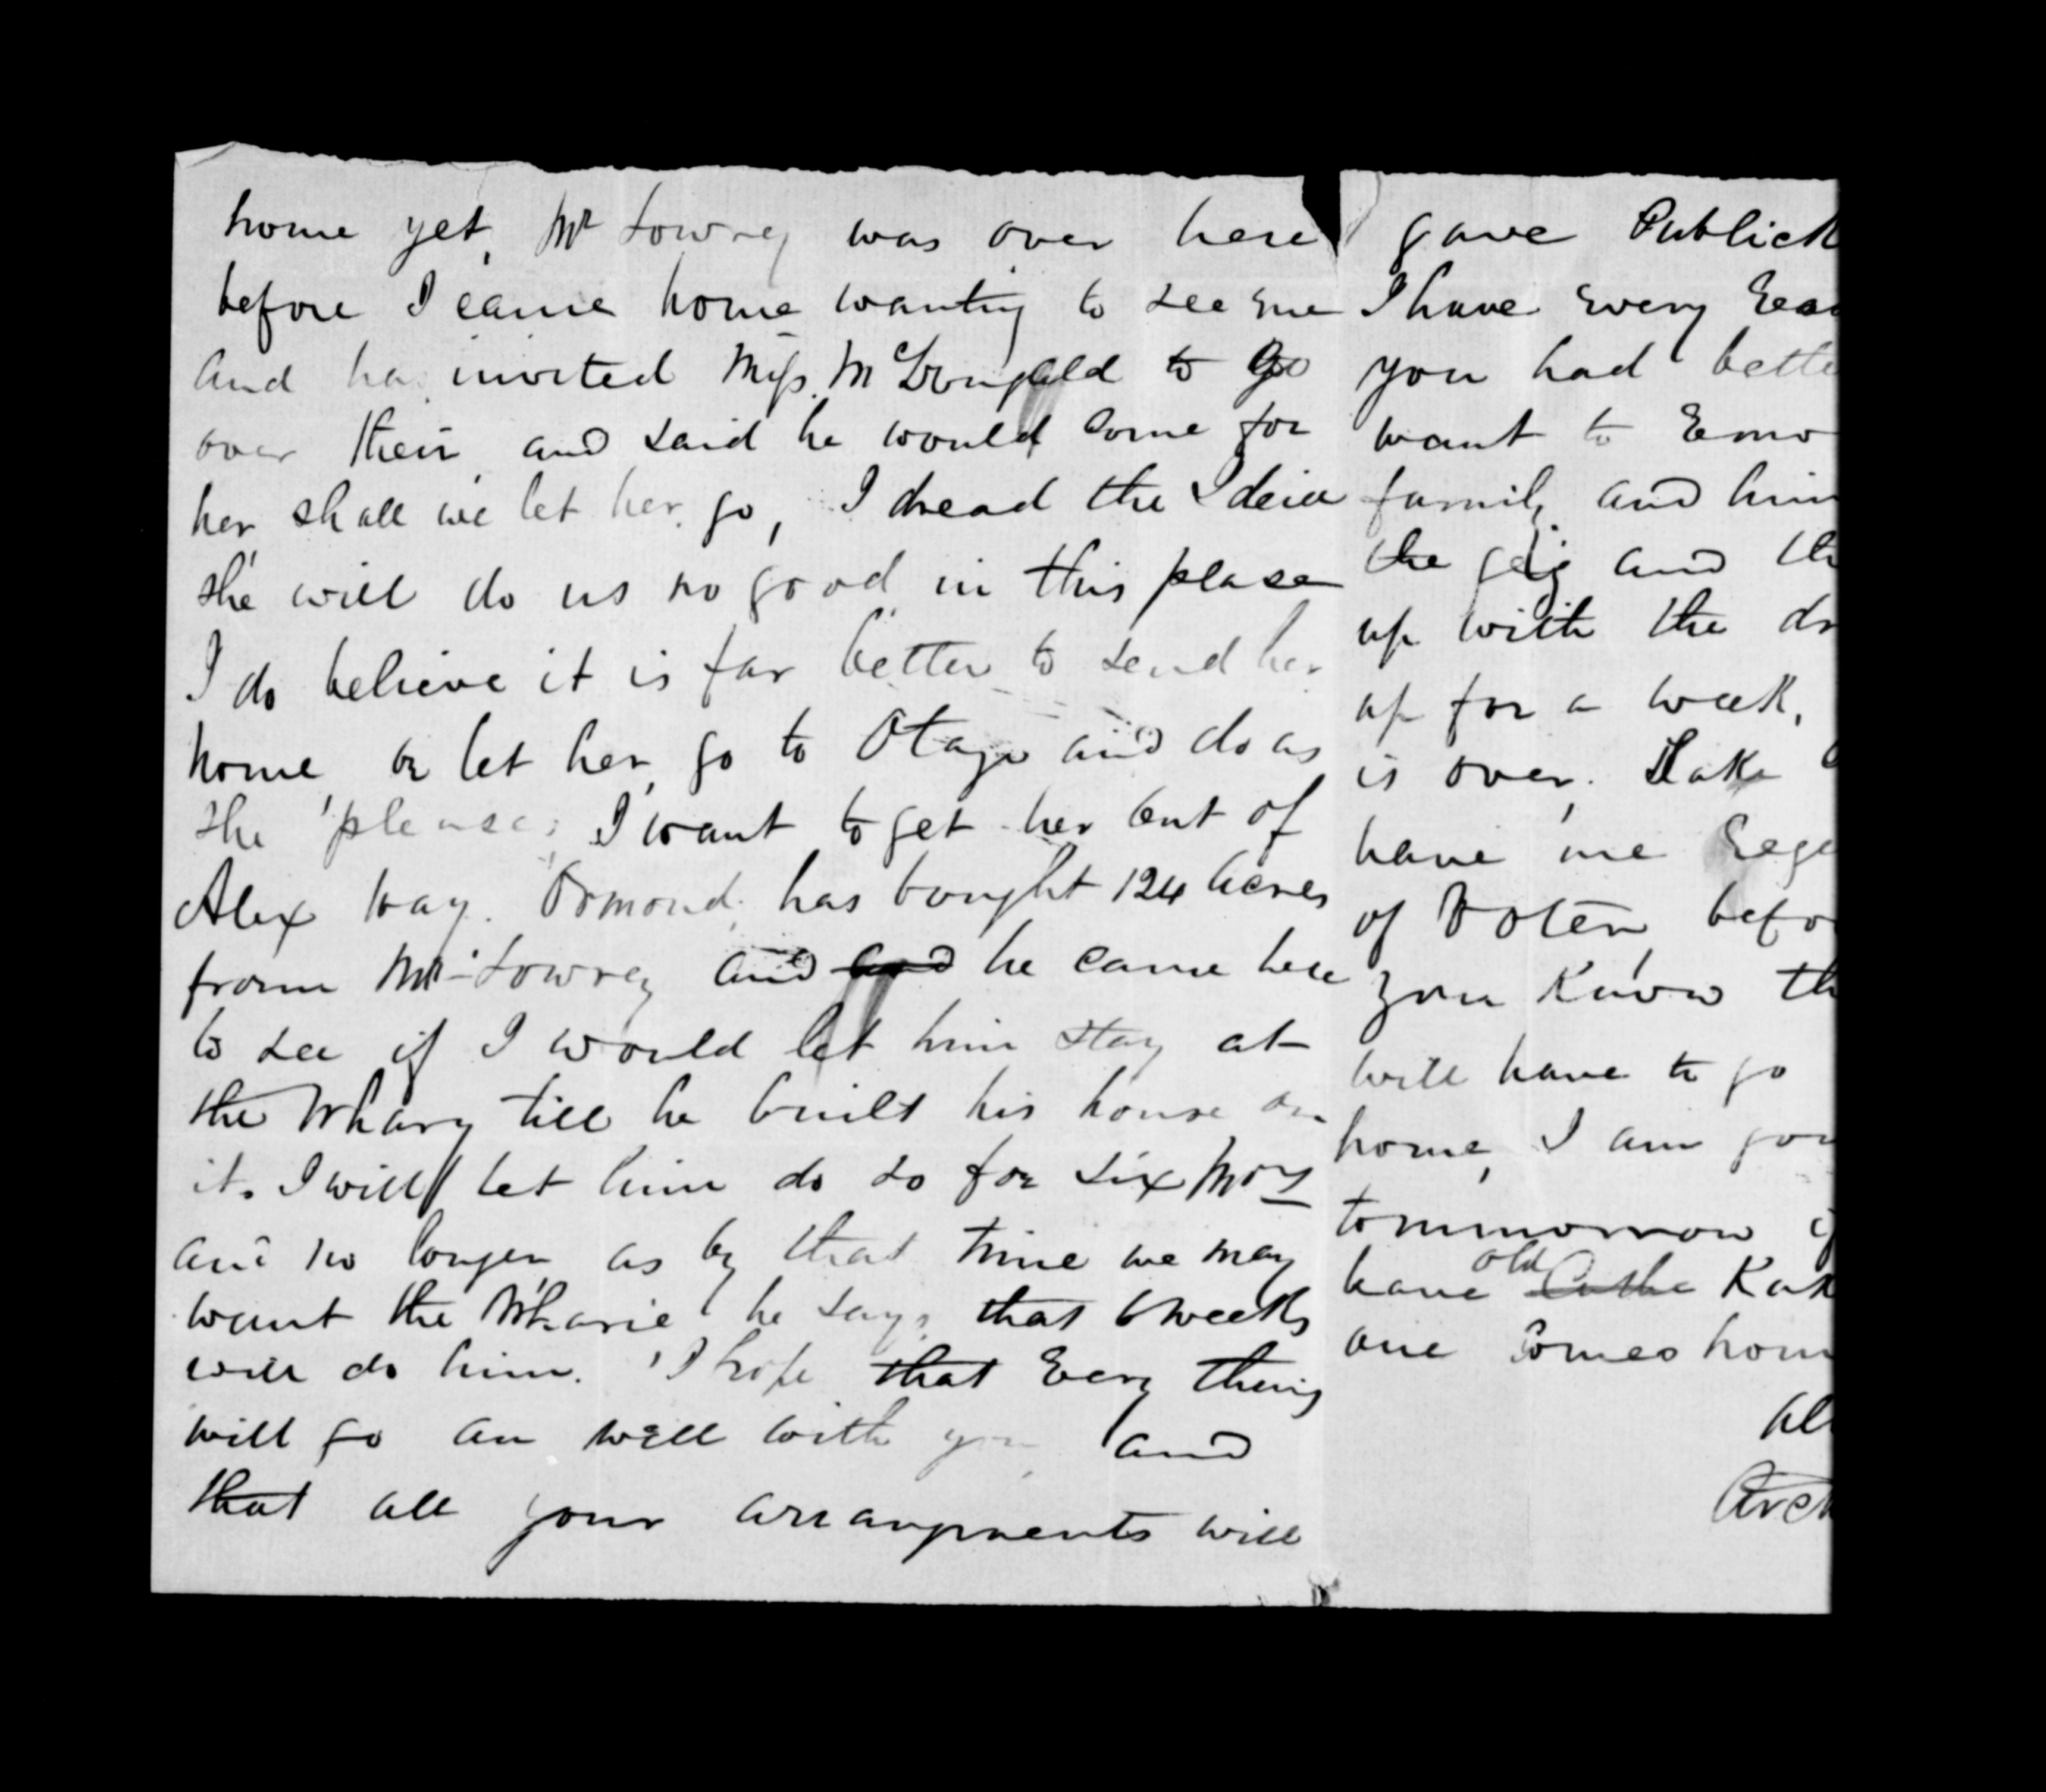 home yet, Mr Lowrey was over here
before I came home wanting to see me
and has invited Miss McDougald to go
over their, and said he would come for
her shall we let her go, I dread the Ideia
she will do us no good in this plase
I do believe it is far better to send her
home, or let her go to Otago and do as
she please, I want to get her out of
Alex way. Ormond has bought 124 acres
from Mr Lowrey and and he came here
to see if I would let him stay at
the Whary till he built his house on
it. I will let him do so for six Mos
and no longer, as by that time we may
want the Wharie he says that 6 weeks
will do him. I hope that Every thing
will go on well with you and
that all your arrangments will
gave Publick
I have Every Rea
you had bette
want to Remo
family and him
the gig and th
up with the dr
up for a week,
is over. Take
have me Rege
of Voters, befo
you Know th
will have to go
home, I am goi
tommorrow if
have old Kak
one Comes hom
al
Arch